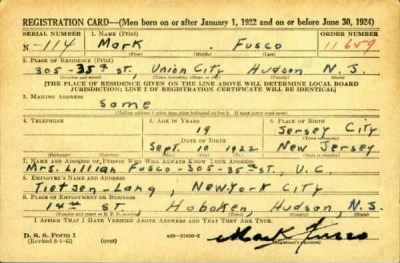 REGISTRATION CARD—(Men born on or after January 1, 1922 and on or before June 30, 1924)
SERIAL NUMBER 1. NAME (Print) ORDER NUMBER
N-114 Mark Fusco 11659
(First) (Middle) (Last)
2. PLACE OF RESIDENCE (Print)
305-35th ST, Union City Hudson N.J.
[THE PLACE OF RESIDENCE GIVEN ON THE LINE ABOVE WILL DETERMINE LOCAL BOARD
JURISDICTION; LINE 2 OF REGISTRATION CERTIFICATE WILL BE IDENTICAL]
3. MAILING ADDRESS
Same
4. TELEPHONE 5. AGE IN YEARS 6. PLACE OF BIRTH
19 Jersey City
DATE OF BIRTH
Sept. 10 1922 New Jersey
7. NAME AND ADDRESS OF PERSON WHO WILL ALWAYS KNOW YOUR ADDRESS
Mrs. Lillian Fusco-305-35th ST., U.C.
8. EMPLOYER'S NAME AND ADDRESS
Tietjen-Lang, New York City
9. PLACE OF EMPLOYMENT OR BUSINESS
14th ST Hoboken, Hudson, N.J.
I AFFIRM THAT I HAVE VERIFIED ABOVE ANSWERS AND THAT THEY ARE TRUE.
D. S. S. Form 1
(Revised 6-1-42) (over) Mark Fusco